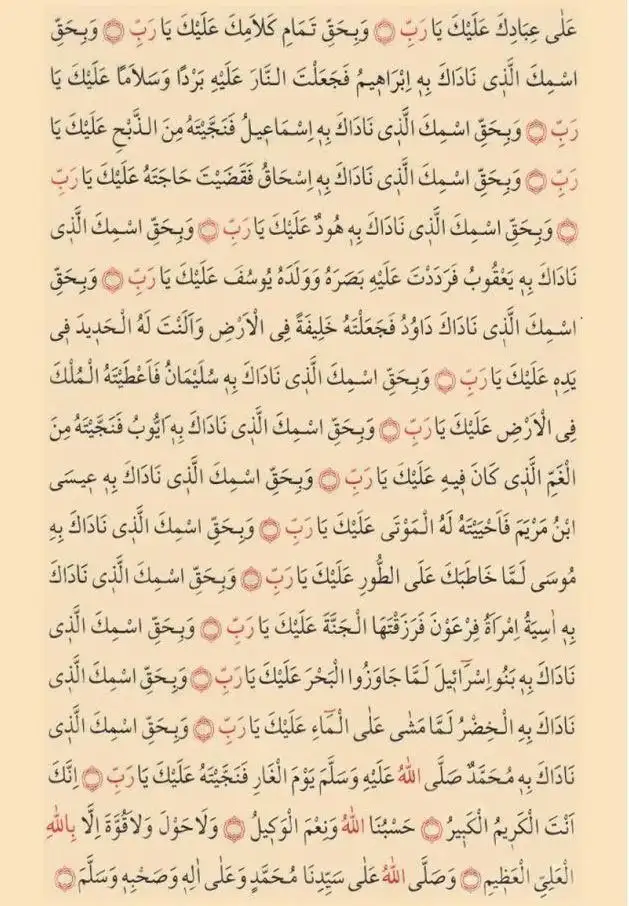 عَلٰى عِبَادِكَ عَلَيْكَ يَا رَبِّ ۝ وَبِحَقِّ تَمَامِ كَلَامِكَ عَلَيْكَ يَا رَبِّ ۝ وَبِحَقِّ
اسْمِكَ الَّذٖى نَادَاكَ بِهٖ اِبْرَاهٖيمُ فَجَعَلْتَ النَّارَ عَلَيْهِ بَرْدًا وَسَلَامًا عَلَيْكَ يَا
رَبِّ ۝ وَبِحَقِّ اسْمِكَ الَّذٖى نَادَاكَ بِهٖ اِسْمَاعٖيلُ فَنَجَّيْتَهُ مِنَ الذَّبْحِ عَلَيْكَ يَا
رَبِّ ۝ وَبِحَقِّ اسْمِكَ الَّذٖى نَادَاكَ بِهٖ اِسْحَاقُ فَقَضَيْتَ حَاجَتَهُ عَلَيْكَ يَا رَبِّ
۝ وَبِحَقِّ اسْمِكَ الَّذٖى نَادَاكَ بِهٖ هُودٌ عَلَيْكَ يَا رَبِّ ۝ وَبِحَقِّ اسْمِكَ الَّذٖى
نَادَاكَ بِهٖ يَعْقُوبُ فَرَدَدْتَ عَلَيْهِ بَصَرَهُ وَوَلَدَهُ يُوسُفَ عَلَيْكَ يَا رَبِّ ۝ وَبِحَقِّ
اسْمِكَ الَّذٖى نَادَاكَ دَاوُدُ فَجَعَلْتَهُ خَلِيفَةً فِى الْاَرْضِ وَاَلَنْتَ لَهُ الْحَدِيدَ فٖى
يَدِهٖ عَلَيْكَ يَا رَبِّ ۝ وَبِحَقِّ اسْمِكَ الَّذٖى نَادَاكَ بِهٖ سُلَيْمَانُ فَاَعْطَيْتَهُ الْمُلْكَ
فِى الْاَرْضِ عَلَيْكَ يَا رَبِّ ۝ وَبِحَقِّ اسْمِكَ الَّذٖى نَادَاكَ بِهٖ اَيُّوبُ فَنَجَّيْتَهُ مِنَ
الْغَمِّ الَّذٖى كَانَ فٖيهِ عَلَيْكَ يَا رَبِّ ۝ وَبِحَقِّ اسْمِكَ الَّذٖى نَادَاكَ بِهٖ عٖيسَى
ابْنُ مَرْيَمَ فَاَحْيَيْتَهُ لَهُ الْمَوْتٰى عَلَيْكَ يَا رَبِّ ۝ وَبِحَقِّ اسْمِكَ الَّذٖى نَادَاكَ بِهٖ
مُوسَى لَمَّا خَاطَبَكَ عَلَى الطُّورِ عَلَيْكَ يَا رَبِّ ۝ وَبِحَقِّ اسْمِكَ الَّذٖى نَادَاكَ
بِهٖ اٰسِيَةُ اِمْرَاَةُ فِرْعَوْنَ فَرَزَقْتَهَا الْجَنَّةَ عَلَيْكَ يَا رَبِّ ۝ وَبِحَقِّ اسْمِكَ الَّذٖى
نَادَاكَ بِهٖ بَنُو اِسْرَٓائٖيلَ لَمَّا جَاوَزُوا الْبَحْرَ عَلَيْكَ يَا رَبِّ ۝ وَبِحَقِّ اسْمِكَ الَّذٖى
نَادَاكَ بِهِ الْخِضْرُ لَمَّا مَشٰى عَلَى الْمَٓاءِ عَلَيْكَ يَا رَبِّ ۝ وَبِحَقِّ اسْمِكَ الَّذٖى
نَادَاكَ بِهٖ مُحَمَّدٌ صَلَّى اللّٰهُ عَلَيْهِ وَسَلَّمَ يَوْمَ الْغَارِ فَنَجَّيْتَهُ عَلَيْكَ يَا رَبِّ ۝ اِنَّكَ
اَنْتَ الْكَرٖيمُ الْكَبٖيرُ ۝ حَسْبُنَا اللّٰهُ وَنِعْمَ الْوَكٖيلُ ۝ وَلَا حَوْلَ وَلَا قُوَّةَ اِلَّا بِاللّٰهِ
الْعَلِىِّ الْعَظٖيمِ ۝ وَصَلَّى اللّٰهُ عَلٰى سَيِّدِنَا مُحَمَّدٍ وَعَلٰى اٰلِهٖ وَصَحْبِهٖ وَسَلَّمَ ۝